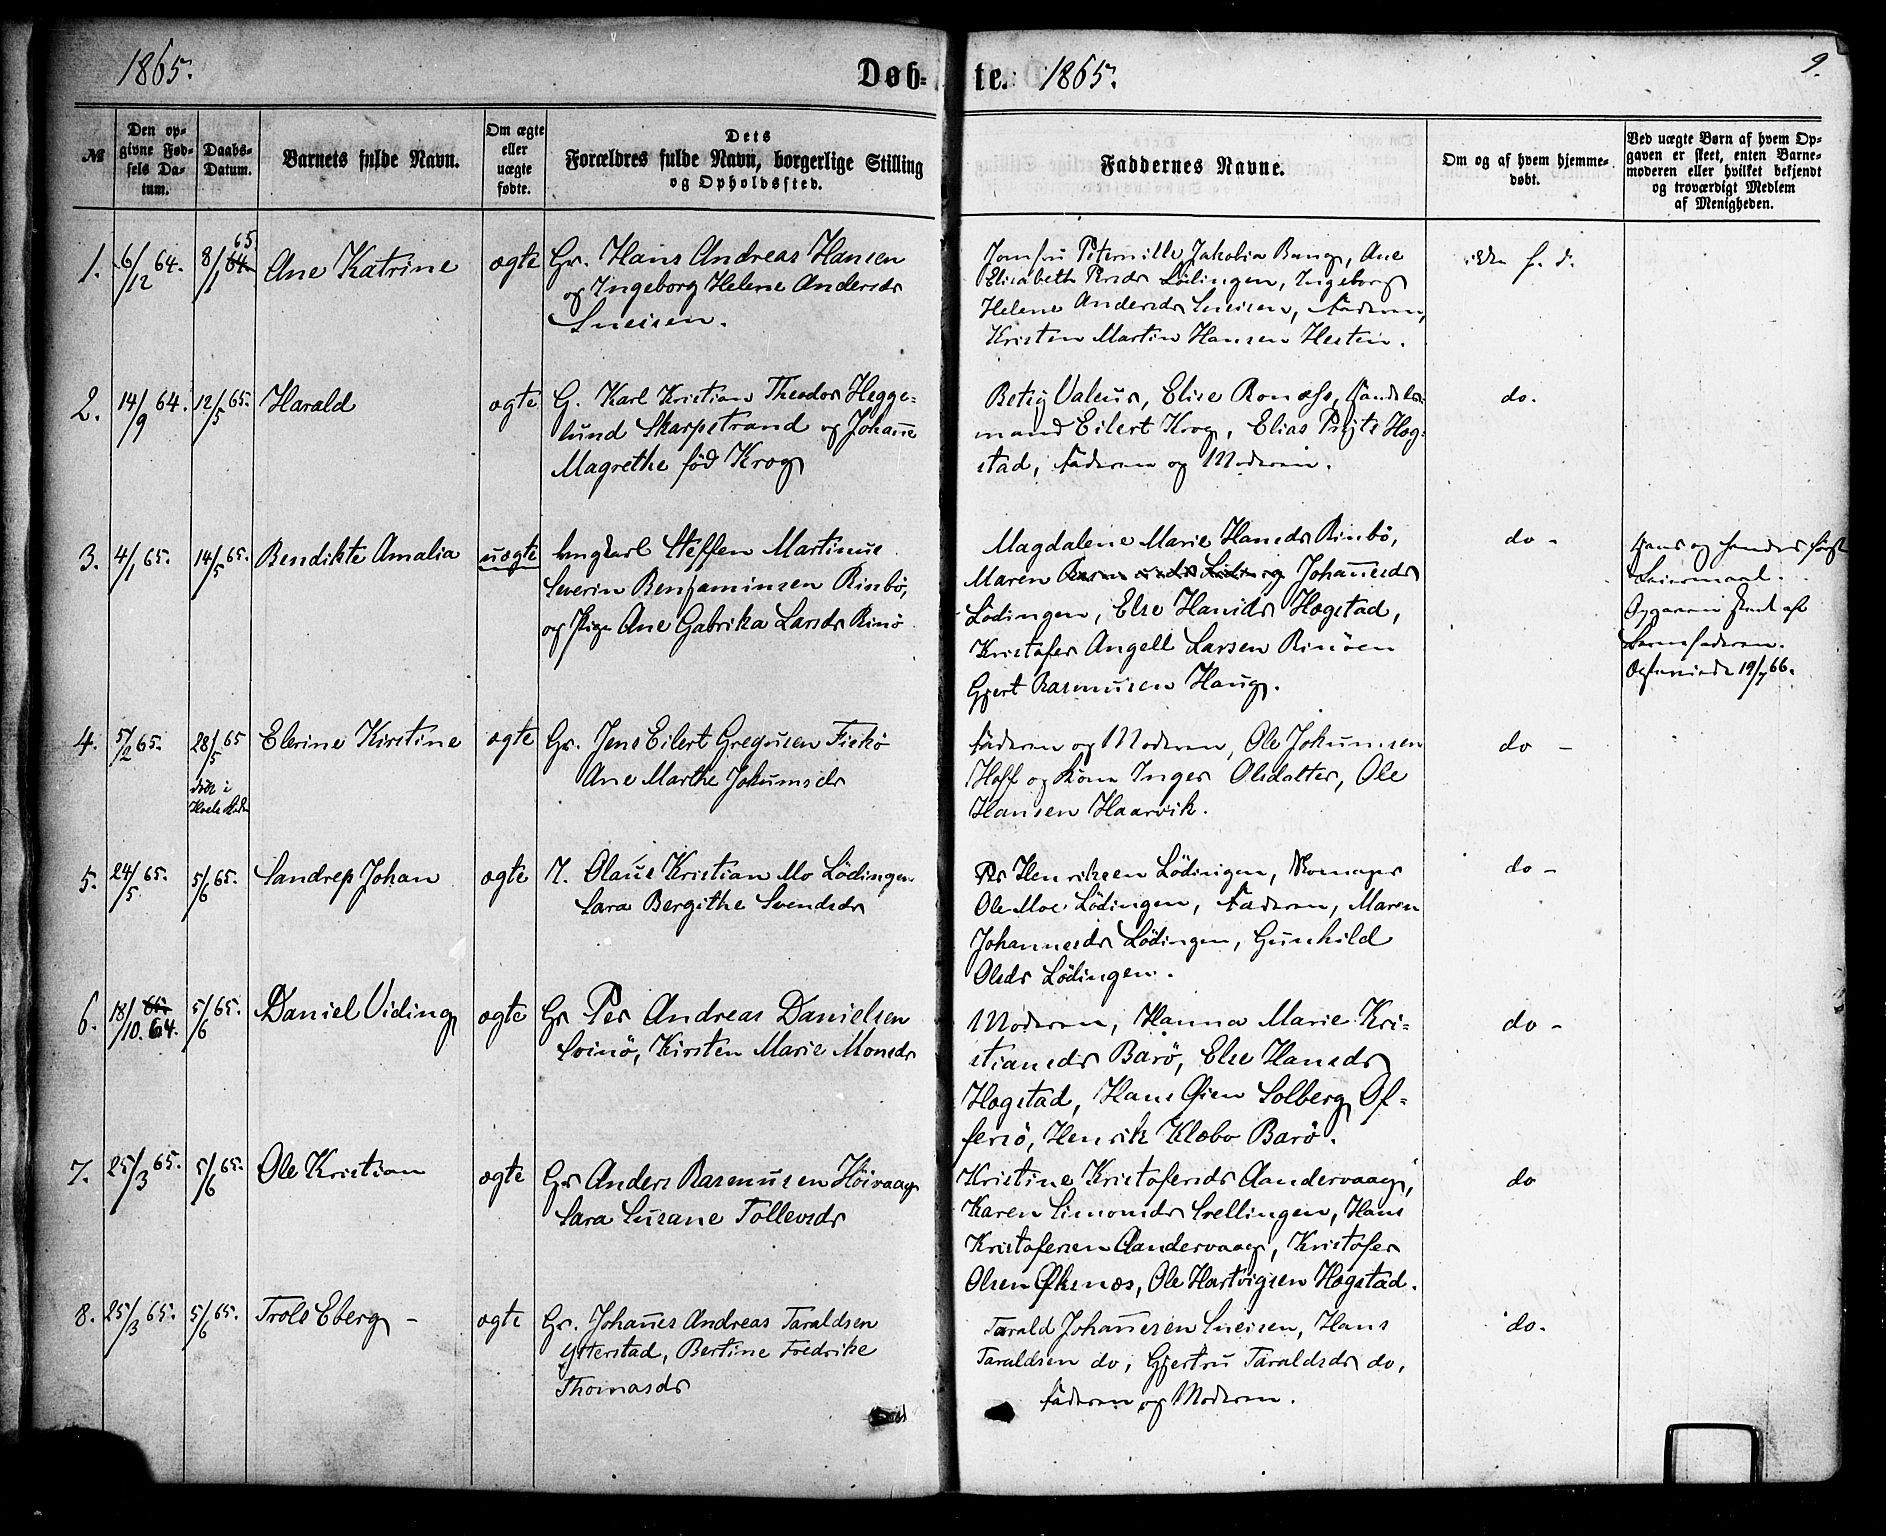 1865.
Døb-
te. 1865.
9.
№
Den op-
givne Fød-
sels Da-
tum.
Daabs-
Datum.
Barnets fulde Navn.
Om ægte
eller
uægte
fødte.
Dets
Forældres fulde Navn, borgerlige Stilling
og Opholdssted.
Faddernes Navne.
Om og af hvem hjemme-
døbt.
Ved uægte Børn af hvem Op-
gaven er skeet, enten Barne-
moderen eller hvilket bekjendt
og troværdigt Medlem
af Menigheden.
1. 6/12 64. 8/1 65. 64. Ane Katrine ægte Gr. Hans Andreas Hansen
og Ingeborg Helene Andersdr
Sneisen.
Jomfru Peternille Jakobia Bang, Ane
Elisabeth Persdr Lödingen, Ingeborg
Helene Andersdr Sneisen, Faderen,
Kristen Martin Hansen Hestin.
ikke h. d.
2. 14/9 64. 12/5 65. Harald ægte G. Karl Kristian Theodor Hegge-
lund Skarpstrand og Johanne
Magrethe föd Krog
Betsy Valeur, Elise Ronæss, Handels-
mand Eilert Krog, Elias Prytz Hog-
stad, Faderen og Moderen.
do.
3. 4/1 65. 14/5 65. Bendikte Amalia uægte Ungkarl Steffen Martinus
Severin Benjaminsen Rinbö,
og Pige Ane Gabrika Larsdr Rinö
Magdalene Marie Hansdr Rinbö,
Maren Johannesdr
Lödingen, Else Hansdr Hogstad,
Kristofer Angell Larsen Rinöen
Gjert Rasmusen Haug.
do -
Hans og hendes först
Leiermaal.
Opgaven skeet af
Barnefaderen.
19/7 66.
4. 5/2 65. 28/5 65 Elerine Kirstine ægte Gr. Jens Eilert Gregusen Fiskö
Ane Marthe Jokumsdr
döbt i
Faderen og Moderen, Ole Jokumsen
Hoff og Kone Inger Olsdatter, Ole
Hansen Haarvik.
do -
5. 24/5 65. 5/6 65. Sandrep Johan ægte I. Olaus Kristian Mo Lödingen
Sara Bergithe Svendsdr
Per Henriksen Lödingen,
Ole Moe Lödingen, Faderen, Maren
Johannesdr Lödingen, Gunhild
Olsdr Lödingen.
do -
6. 18/10 65. 64. 5/6 65. Daniel Viding ægte Gr Per Andreas Danielsen
Svinö, Kirsten Marie Monsdr
Moderen, Hanna Marie Kri-
stiansdr Barö, Else Hansdr
Hogstad, Hans Öien Solberg Of-
fersö, Henrik Klæbo Barö.
do -
7. 25/3 65. 5/6 65. Ole Kristian ægte Gr Anders Rasmusen Höivaag
Sara Susane Tollevsdr
Kristine Kristofersdr Aandervaag,
Karen Simonsdr Svellingen, Hans
Kristofersen Aandervaag, Kristofer
Olsen Öksnæs, Ole Hartvigsen Hogstad.
do
8. 25/3 65. 5/6 65. Trols Eberg - ægte Gr. Johannes Andreas Taraldsen
Ytterstad, Bertine Fredrike
Thomasdr
Tarald Johannesen Sneisen, Hans
Taraldsen do, Gjertru Taraldsdr do,
Faderen og Moderen.
do.